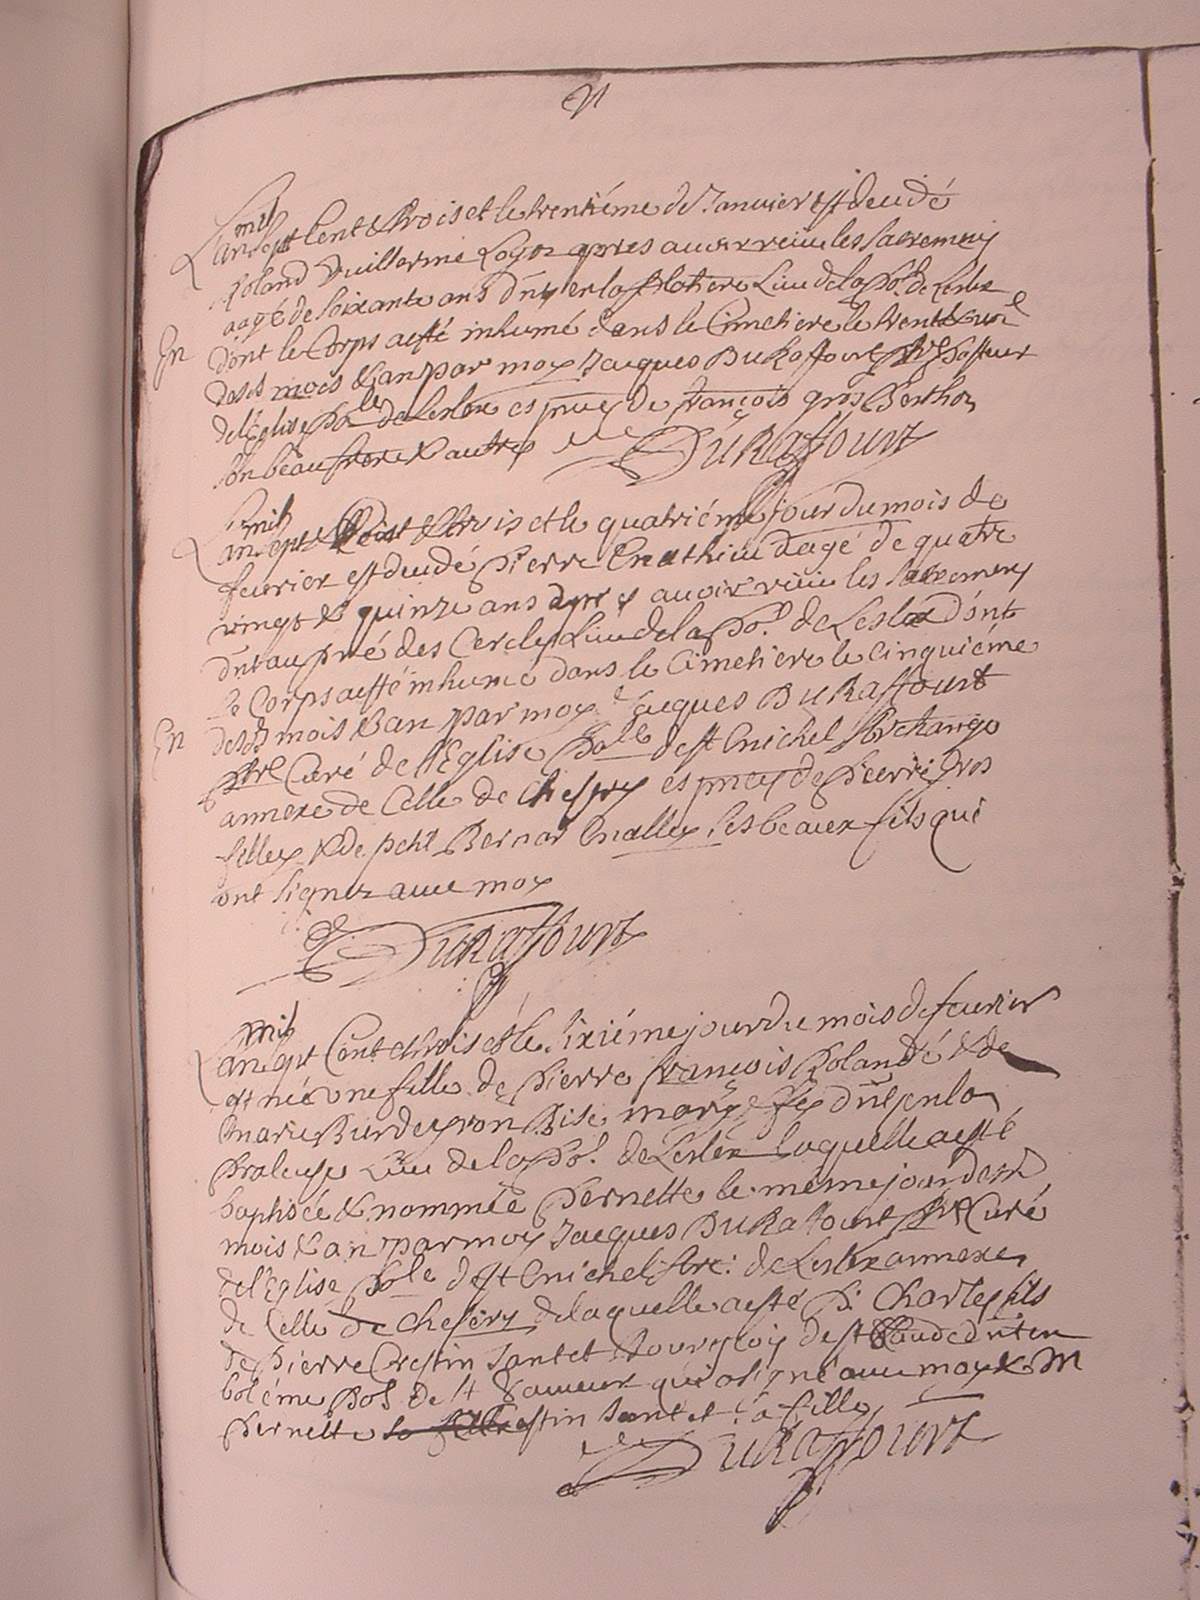 mil
L'an sept Cent & trois et le trentiéme de Janvier est decedé
Roland Guillerme apres avoir reciu les Sacremens
aagé de soixante ans d'nt en la platiere Lieu de la po. de Lelex
En dont le Corps a esté inhumé dans le Cimetiere le trente & un
desds mois & an par moy Jacques DuRaffourt ptre pasteur
de l'Eglise polle de Lelex es pnces de françois gros Berthon
son beaufrere & autres DuRaffourt
mil
L'an sept Cent & trois et le quatriéme jour du mois de
fevrier est decedé pierre Mathieu aagé de quatre
vingt & quinze ans apres avoir reciu les Sacremens
d'nt au pré des Cercles Lieu de la po. de Lelex dont
le Corps a esté inhumé dans le Cimetiere le cinquiéme
En desds mois & an par moy Jacques DuRaffourt
ptre Curé de l'Eglise polle de st Michel Archange
annexe de Celle de Chesery es pnces de pierre gros
fillex & de petit Bernar Mallex ses beaux fils qui
ont signez avec moy
DuRaffourt
mil
L'an sept Cent & trois et le sixiéme jour du mois de fevrier
est née une fille de pierre françois Rolandé & de
Marie Burdeyron Bise mariés d'nt en la
praleuse Lieu de la po. de Lelex laquelle a esté
baptisée & nommée pernette le méme jour desds
mois & an par moy Jacques DuRaffourt ptre Curé
de l'Eglise polle de st Michel Arc: de Lelex annexe
de Celle de Chesery de laquelle a esté p. Charles fils
de pierre Crestin Santet Bourgeois de st Claude d'nt en
boléme de st Sauveur qui a signé avec moy & M
pernette Crestin Santet sa fille
DuRaffourt